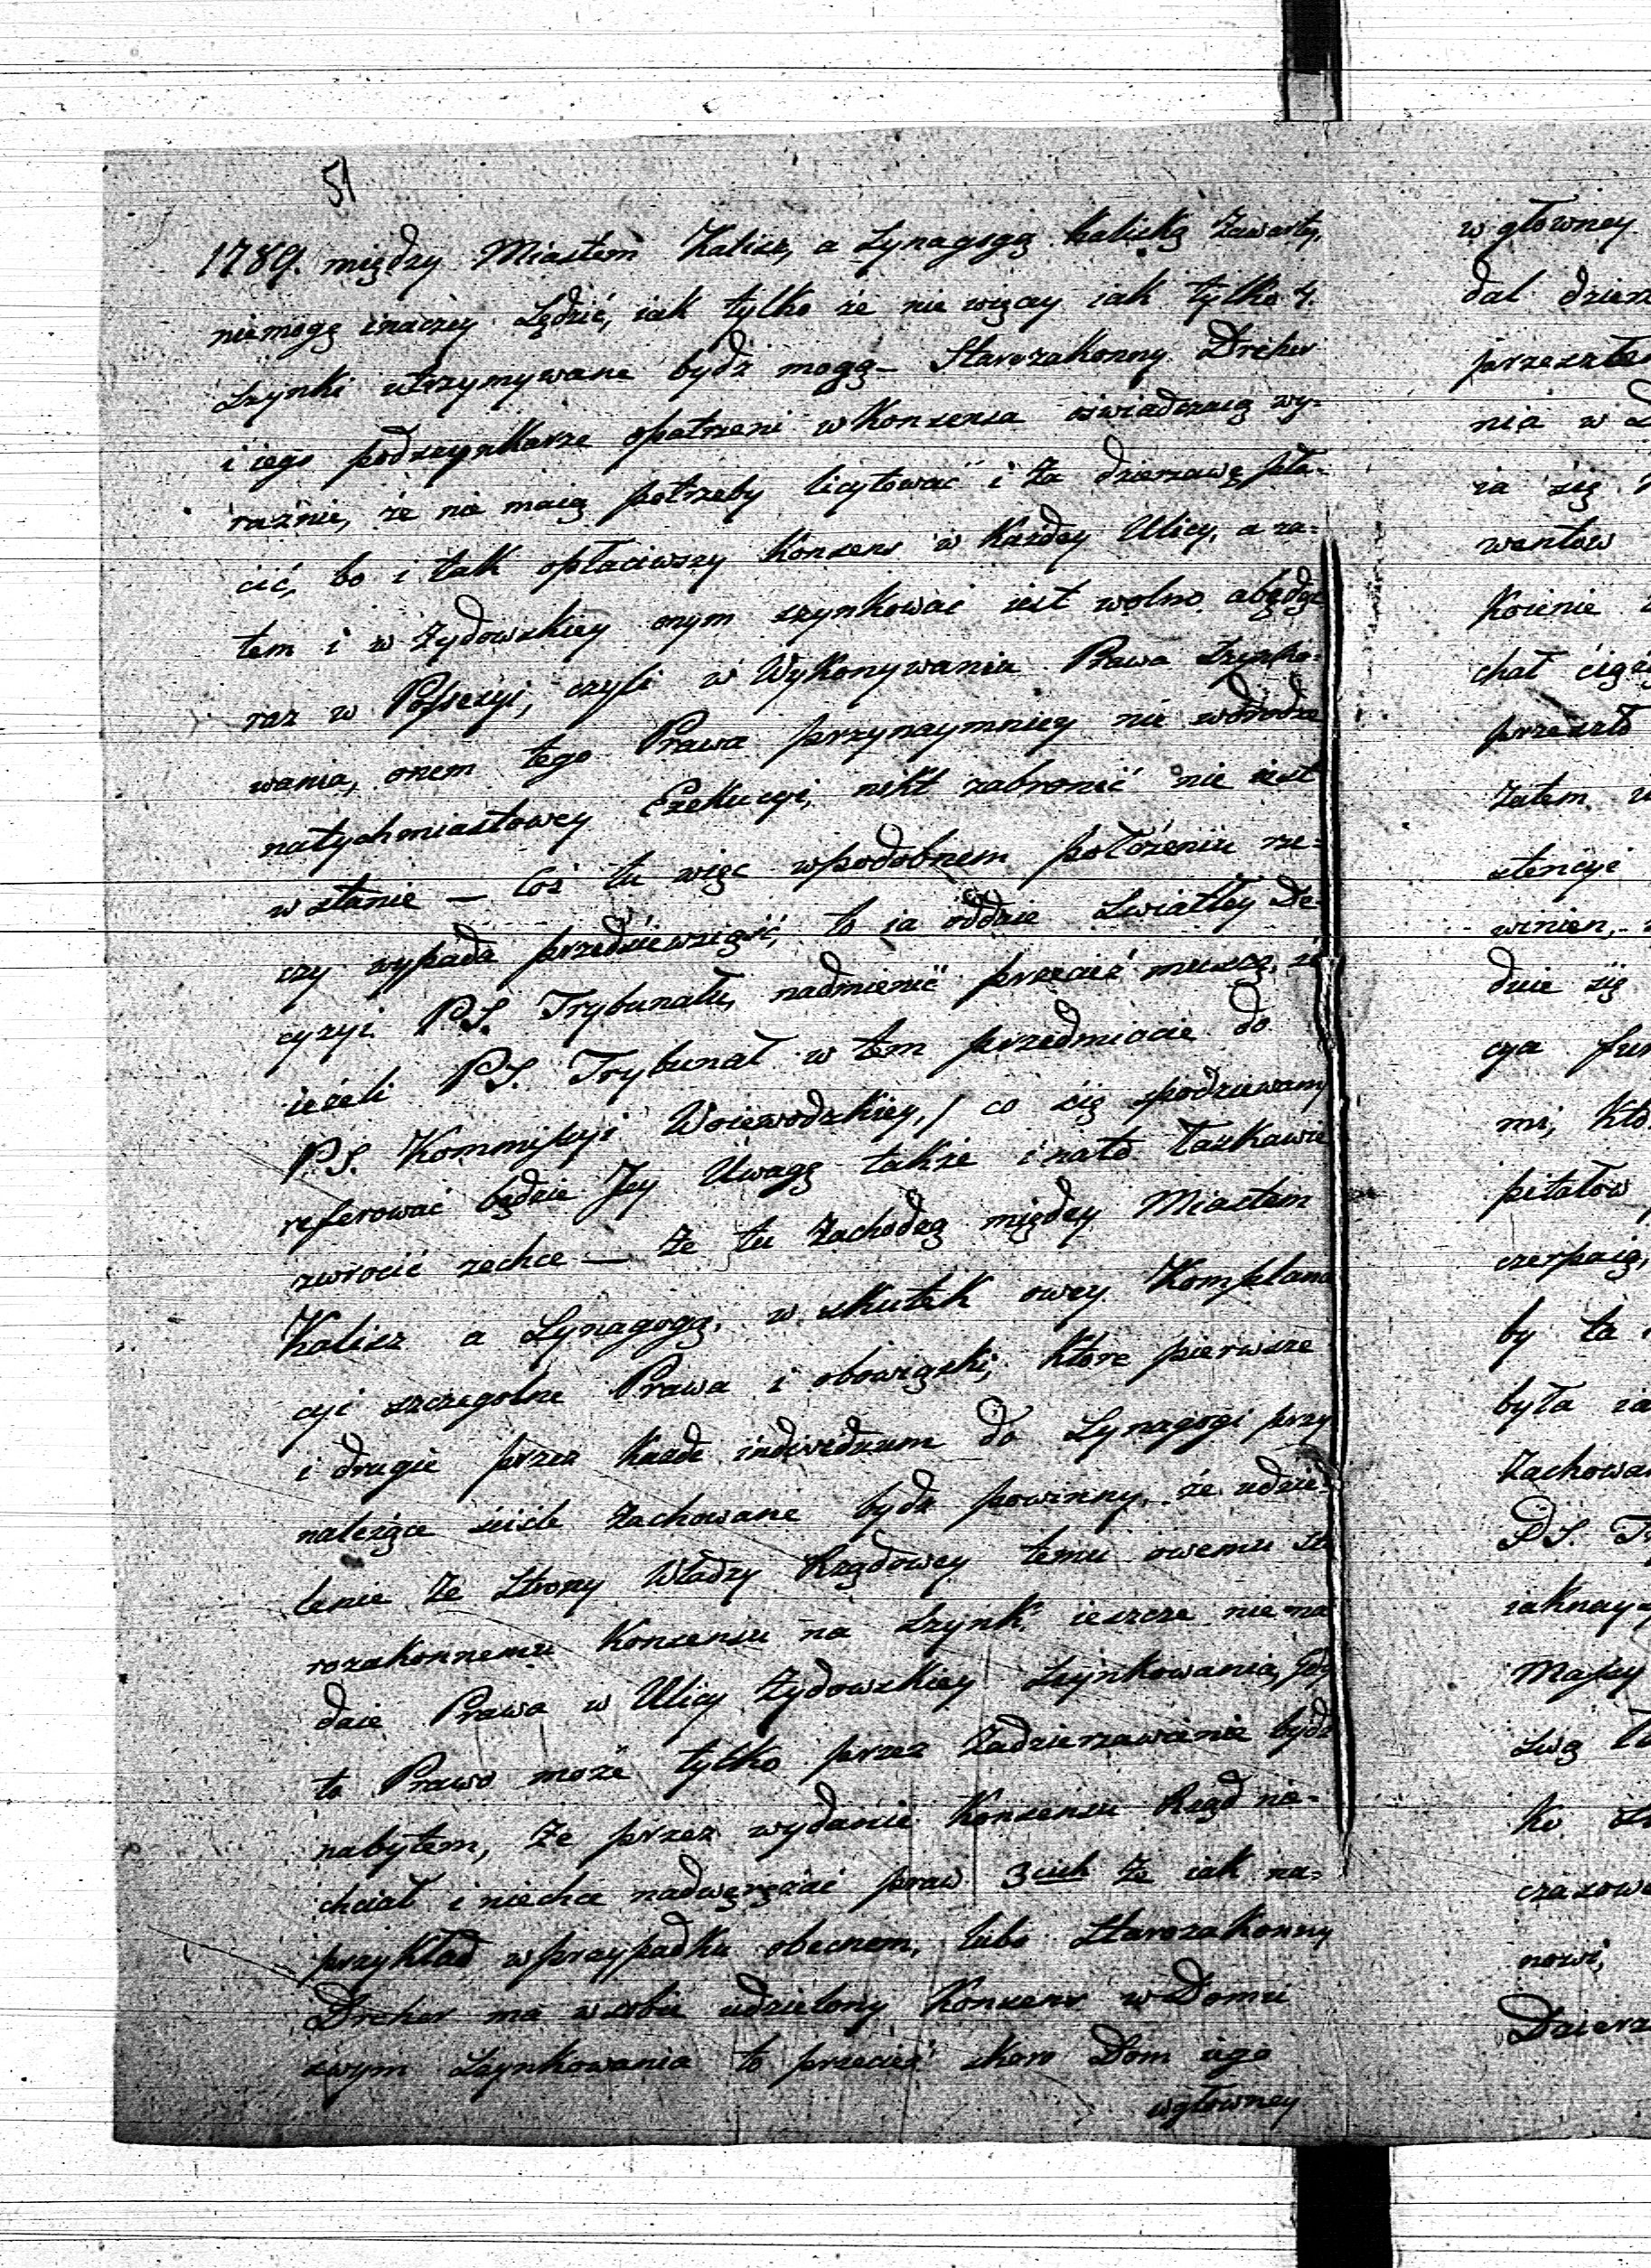 51
1789. między Miastem Kalisz, a Synagogą kaliską zawartey,
niemogę inaczey Sądzić, iak tylko że nie więcey iak tylko 4.
szynki utrzymywane bydź mogą_ Starozakonny Dreher
i iego podszynkarze opatrzeni w Konsensa oświadczaią wy=
raźnie, że nie maią potrzeby licytować i za dzierzawę pła=
cić, bo i tak opłaciwszy Konsens w Każdey Ulicy, a za=
tem i w Żydowskiey onym szynkować iest wolno, a będąc
raz w Possessyi, czyli w Wykonywaniu Prawa Szynko=
wania, onem tego Prawa przynaymniey nie wdrodze
natychmiastowey Exekucyi, nikt zabronić nie iest
w stanie — Coż tu więc wpodobnem położeniu rze=
czy wypada przedsiewziąść, to ia oddaie Swiatłey De=
cyzyi P.S. Trybunału, nadmienić przecież muszę, iż
ieżeli P.S. Trybunał w tem przedmiocie do
P.S. Kommissyi Woiewodzkiey, / co się spodziewamy
referować będzie Jey Uwagę także i nato łaskawie
zwrocić zechce — że tu zachodzą między Miastem
Kalisz a Synagogą, w skutek owey Komplana
cyi szczegolne Prawa i obowiązki, ktore pierwsze
i drugie przez każde individuum do Synagogi przy
należące ściśle zachowane bydź powinny, że udzie=
lenie ze Strony Władzy Rządowey temu owemu sta
rozakonnemu Konsensu na Szynk, ieszcze nie na
daie Prawa w Ulicy Żydowskiey Szynkowania, gdy
to Prawo może tylko przez zadzierzawienie bydź
nabytem, że przez wydanie Konsensu Rząd nie=
chciał i niechce nadwęrężać praw 3cich że iak na=
przykład wprzypadku obecnem, lubo Starozakonny
Dreher ma wsobie udzielony Konsens w Domu
swym Szynkowania to przecież skoro Dom iego
wgłowney
w głowney
dal
przeszłe
nia w
ia się
wentow
Koienie
chał
przeszło
Zatem
stencyi
winien,
dzie się
cya
mi,
pitałow
czerpaią,
by ta
była
Zachowa
P.S.
iaknay
Massy
swą
Ko
czasowe
nowi,
Dzierz